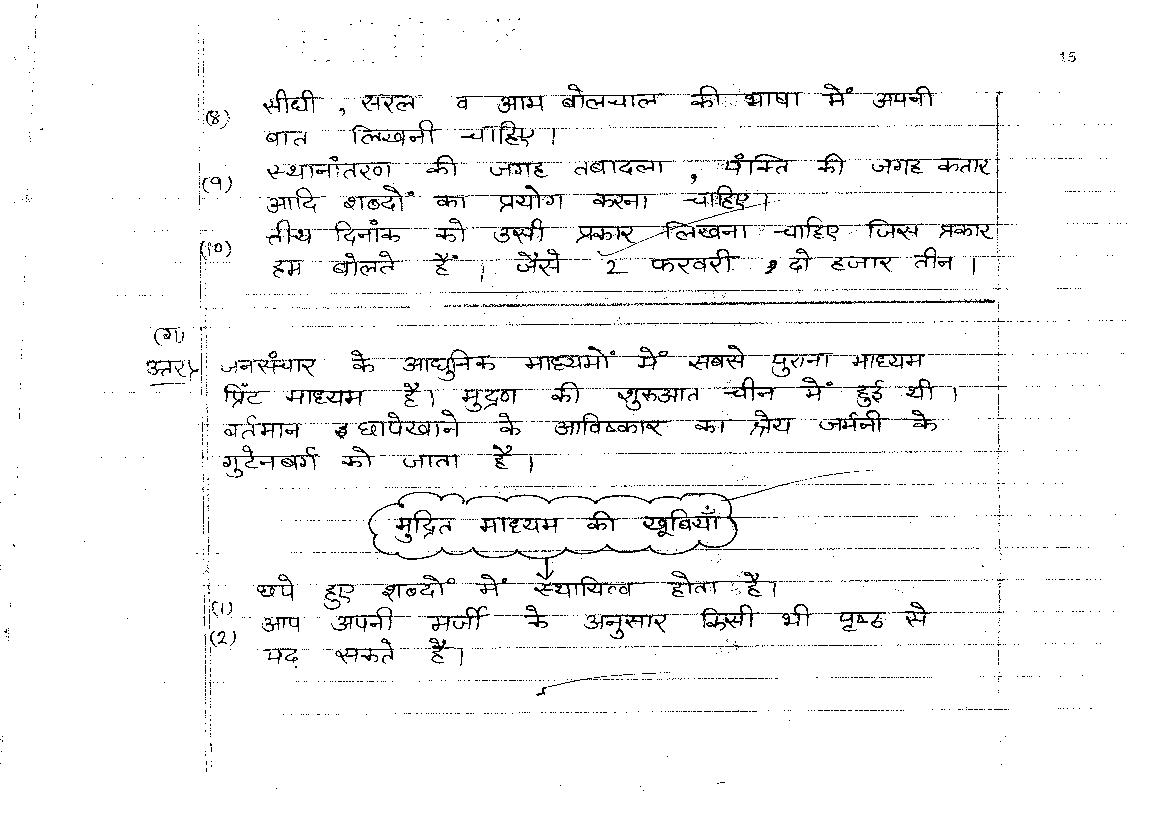 15
(8) सीधी , सरल व आम बोलचाल की भाषा में अपनी
बात लिखनी चाहिए।
(9) स्थानांतरण की जगह तबादला , पंक्ति की जगह कतार
आदि शब्दों का प्रयोग करना चाहिए।
(10) तीथ दिनांक को उसी प्रकार लिखना चाहिए जिस प्रकार
हम बोलते हैं । जैसे 2 फरवरी , दो हजार तीन ।
(ग)
उत्तर) जनसंचार के आधुनिक माध्यमों में सबसे पुराना माध्यम
प्रिंट माध्यम है। मुद्रण की शुरुआत चीन में हुई थी ।
वर्तमान छापेखाने के आविष्कार का श्रेय जर्मनी के
गुटेनबर्ग को जाता है ।
मुद्रित माध्यम की खूबियाँ
(1) छपे हुए शब्दों में स्थायित्व होता है।
(2) आप अपनी मर्जी के अनुसार किसी भी पृष्ठ से
पढ़ सकते हैं।